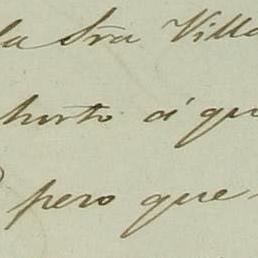 la Sra Vill
hurto á qu
pero que